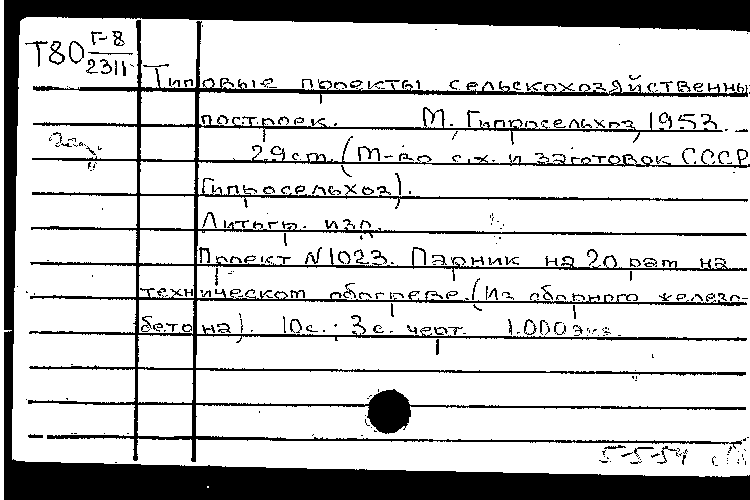 Т80 Г-8
2311
Типовые проекты сельскохозяйственны
построек. М., Гипросельхоз, 1953.
29 ст. (М-во с.х. и заготовок СССР
Гипросельхоз).
Литогр. изд.
Проект N1023. Парник на 20 рам на
техническом обогреве. (Из сборного железо-
бетона). 10 с.; 3 с. черт. 1.000 экз.
5-5-54